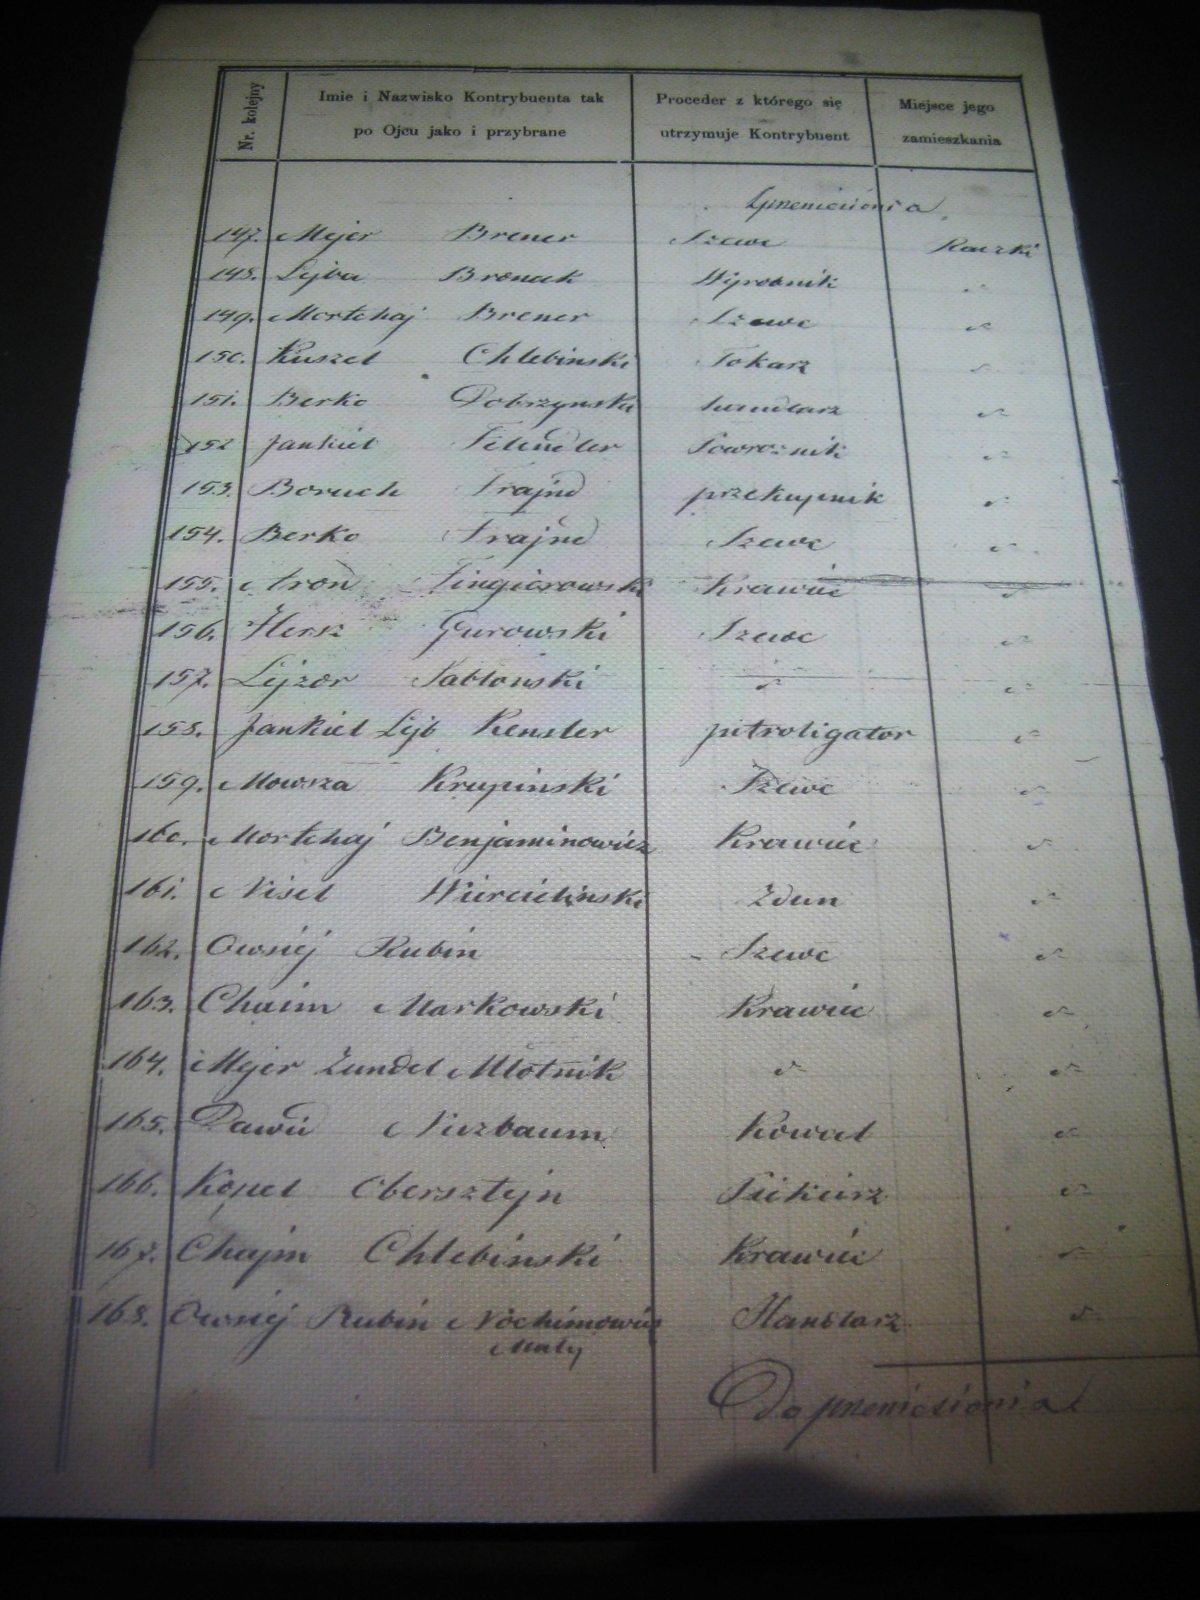 Nr. kolejny
Imie i Nazwisko Kontrybuenta tak
po Ojcu jako i przybrane
Proceder z którego się
utrzymuje Kontrybuent
Miejsce jego
zamieszkania
147. Mejer Brener Szewc Raczki
148. Lejba Bronak Wyrobnik "
149. Mortchaj Brener Szewc "
150. Kuszel Chlebinski Tokarz "
151. Berko Dobrzynski handlarz "
152 Jankiel Powroznik "
153. Boruch Frajnd przekupnik "
154. Berko Frajnd Szewc "
155. Aron Fingierowski Krawiec "
156. Hersz Gurowski Szewc "
157. Lejzor Jabłonski " "
158. Jankiel Lejb Kensler jntroligator "
159. Mowsza Krupinski Szewc "
160. Mortchaj Benjaminowicz Krawiec "
161. Nisel Zdun "
162. Owsiej Rubin Szewc "
163. Chaim Markowski Krawiec "
164. Mejer Zundel Młotnik " "
165. Dawid Nuzbaum Kowal "
166. Kopel Obersztejn Piekarz "
167. Chajm Chlebinski Krawiec "
168. Owsiej Rubin Nochimowicz Handlarz "
Mały
Do przeniesienia